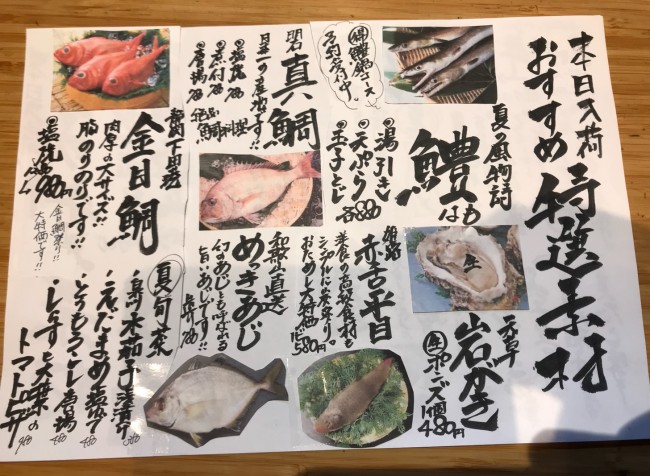 本日入荷
おすすめ
特選素材
鱧鍋コース
予約受付中。
夏の風物詩
鱧
はも
湯引き
天ぷら
玉子とじ
各880
天草
岩がき
生ポン酢
1個
480円
明石
真鯛
日本一の産地です!!
塩焼
煮付
唐揚
各780
鯛料理
姫路
赤舌平目
洋食の高級食材も
シンプルに炭火炙り。
おためし大特価
580円
和歌山直送
めっきあじ
幻のあじとも呼ばれる
旨いあじです!!
静岡下田産
金目鯛
肉厚の大サイズ!!
脂のりのりです!!
塩焼
780円
金目鯛祭り!!
大特価です!!
夏旬菜
長崎水茄子浅漬け
380
こえだまめ塩ゆで
480
とうもろこし唐揚
480
しらすと大葉の
トマトピザ
980